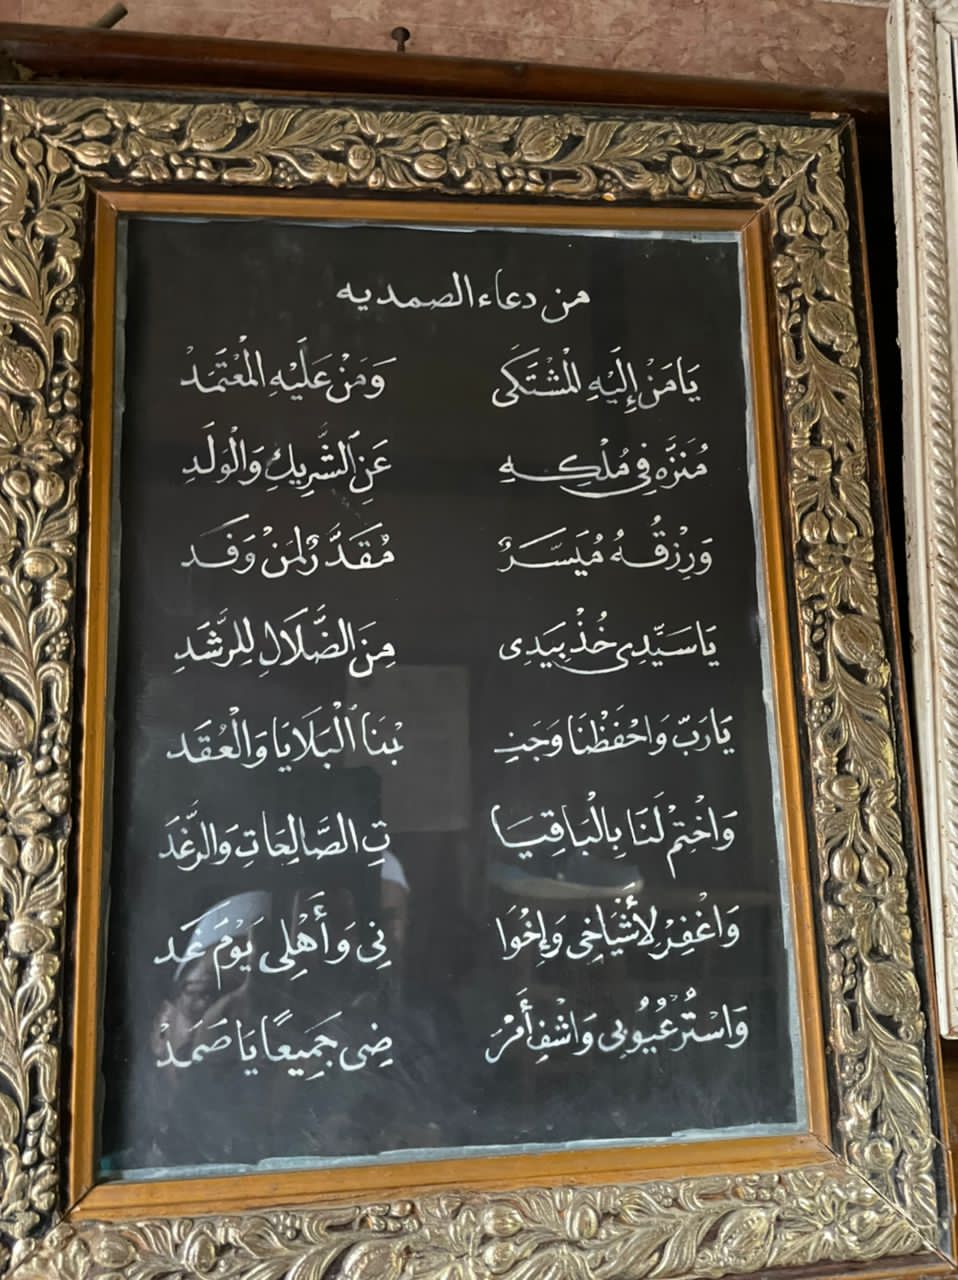 من دعاء الصمديه
يَا مَنْ إِلَيْهِ الْمُشْتَكَى وَمَنْ عَلَيْهِ الْمُعْتَمَدْ
مُنَزَّه فِي مُلْكِهِ عَنِ الشَّرِيكِ وَالْوَلَدِ
وَرِزْقُهُ مُيَسَّرٌ مُقَدَّرٌ لِمَنْ وَفَد
يَا سَيِّدِي خُذْ بِيَدِي مِنَ الضَّلَالِ لِلرَّشَدِ
يَارَبّ وَاحْفَظْنَا وَجَنِـ ـبْنَا الْبَلَايَا وَالْعُقَد
وَاخْتِمْ لَنَا بِالْبَاقِيَا تِ الصَّالِحَاتِ وَالرَّغَدَ
وَاغْفِرْ لأَشْيَاخِي وَإِخْوَا نِي وَأَهْلِي يَوْمَ غَد
وَاسْتُرْ عُيُوبِي وَاشْفِ أَمْرَ ضِي جَمِيعًا يَا صَمَدْ